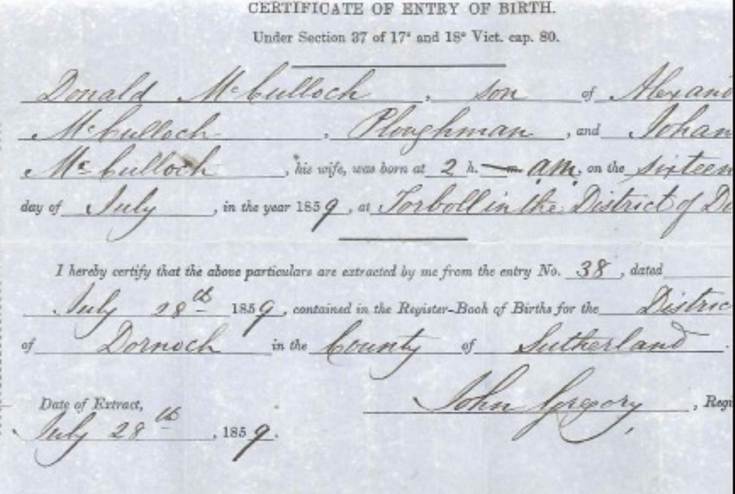 CERTIFICATE OF ENTRY OF BIRTH.
Under Section 37 of 17° and 18° Vict. cap. 80.
Donald McCulloch, son of Alexand
McCulloch, Ploughman, and Johan
McCulloch, his wife, was born at 2 h. — m. a.m. on the sixteen
day of July, in the year 1859, at Torboll in the District of Do
I hereby certify that the above particulars are extracted by me from the entry No. 38, dated
July 28th 1859, contained in the Register-Book of Births for the Distric
of Dornoch in the County of Sutherland.
John Gregory, Regi
Date of Extract,
July 28th, 1859.